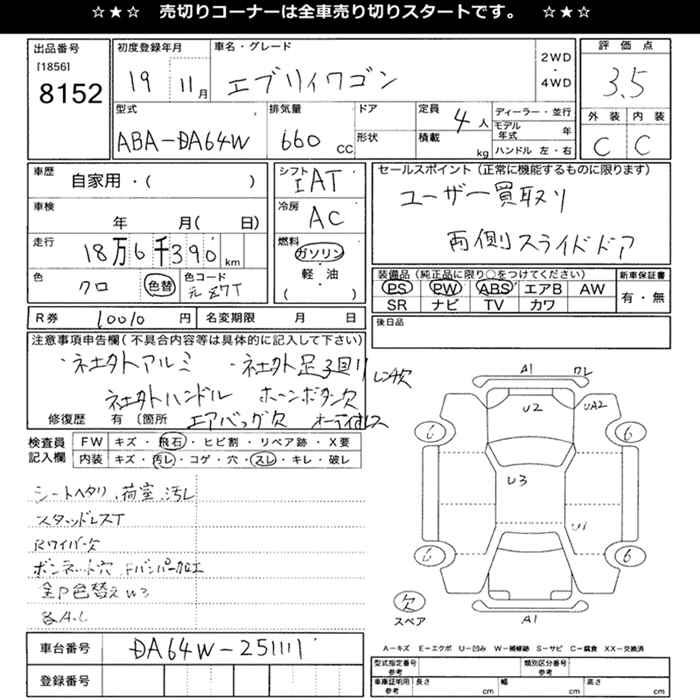 ☆★☆ 売切りコーナーは全車売り切りスタートです。 ☆★☆
出品番号
[1856]
8152
初度登録年月
19 11月
車名・グレード
エブリィワゴン
2WD
・
4WD
評価点
3.5
外装 内装
C C
型式
ABA-DA64W
排気量
660 CC
ドア
形状
定員
4人
積載
kg
ディーラー・並行
モデル年式 年
ハンドル 左・右
車歴
自家用・( )
車検
年 月( 日)
走行
18万6千390km
色
クロ 色替
色コード
元 Z7T
シフト
IAT
冷房
AC
燃料
ガソリン
・
軽・油
( )
セールスポイント(正常に機能するものに限ります)
ユーザー買取り
両側スライドドア
装備品(純正品に限り○をつけてください)
PS PW ABS エアB AW
SR ナビ TV カワ
新車保証書
有・無
R券 10010円
名変期限 月 日
後日品
注意事項申告欄(不具合内容等は具体的に記入して下さい)
・社外アルミ ・社外足3回り レンチ欠
社外ハンドル ホーンボタン欠
修復歴 有 〔箇所 エアバッグ欠 オーディオレス
検査員記入欄
FW キズ・飛石・ヒビ割・リペア跡・X要
内装 キズ・汚レ・コゲ・穴・スレ・キレ・破レ
シートヘタリ、荷室汚レ
スタッドレスT
Rワイパー欠
ボンネット穴 Fバンパー加工
全P色替え W3
各A.U
車台番号 DA64W-251111
登録番号
A1 ワレ
U2 UA2
6 6
U3
U1
6 6
欠
スペア
A1
A-キズ E-エクボ U-凹み W-補修跡 S-サビ C-腐食 XX-交換済
型式指定番号
参考
類別区分番号
参考
車庫証明用
参考
長さ cm 幅 cm 高さ cm